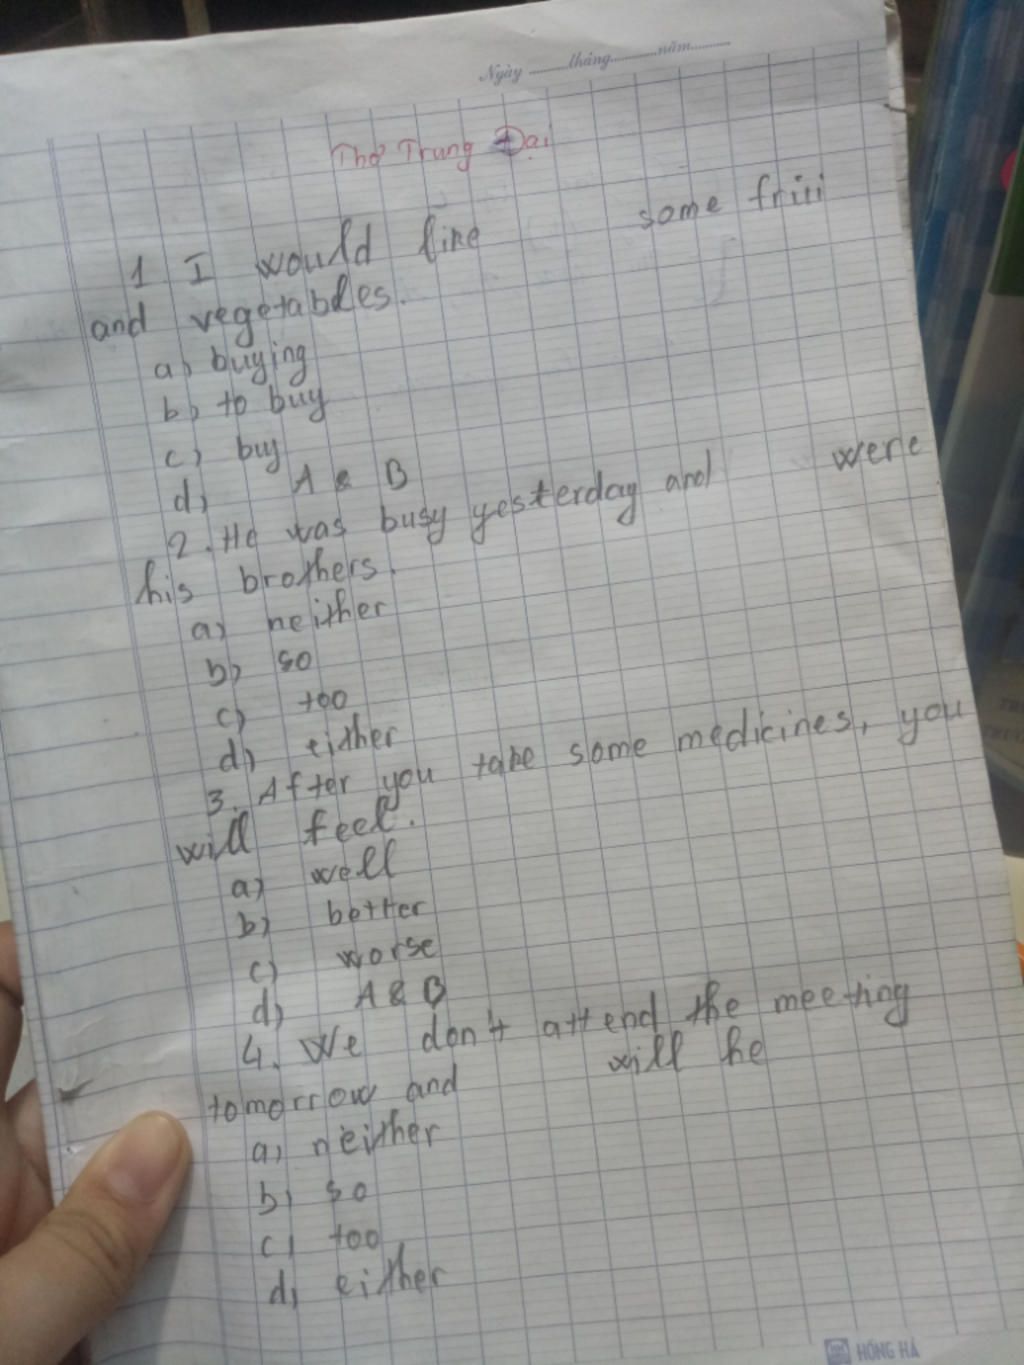 Ngày ........tháng..........năm.........
Thơ Trung Đại
1 I would like some friii
and vegetables.
a) buying
b) to buy
c) buy
d) A & B
2. He was busy yesterday and were
his brothers.
a) neither
b) so
c) too
d) either
3. After you take some medicines, you
will feel.
a) well
b) better
c) worse
d) A & B
4. We don't attend the meeting
tomorrow and will he
a) neither
b) so
c) too
d) either
HỒNG HÀ